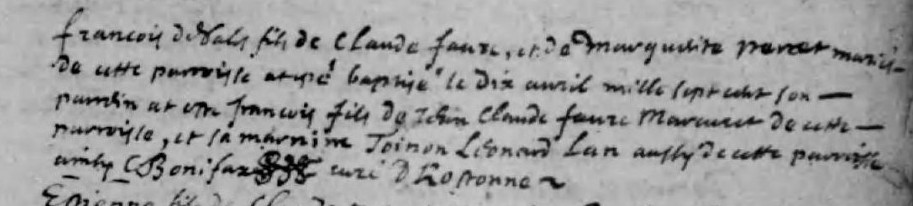 francois de Vals fils de Claude faure, et de Marguerite perret mariés
de cette parroisse at esté baptisé le dix auril mille sept cent son
parrin at este francois fils de Jean Claude faure Marcuret de cette
parroisse, et sa marrine Toinon Léonard Lan aussy de cette parroisse
ainsy Bonifax curé D
Estienne fils de